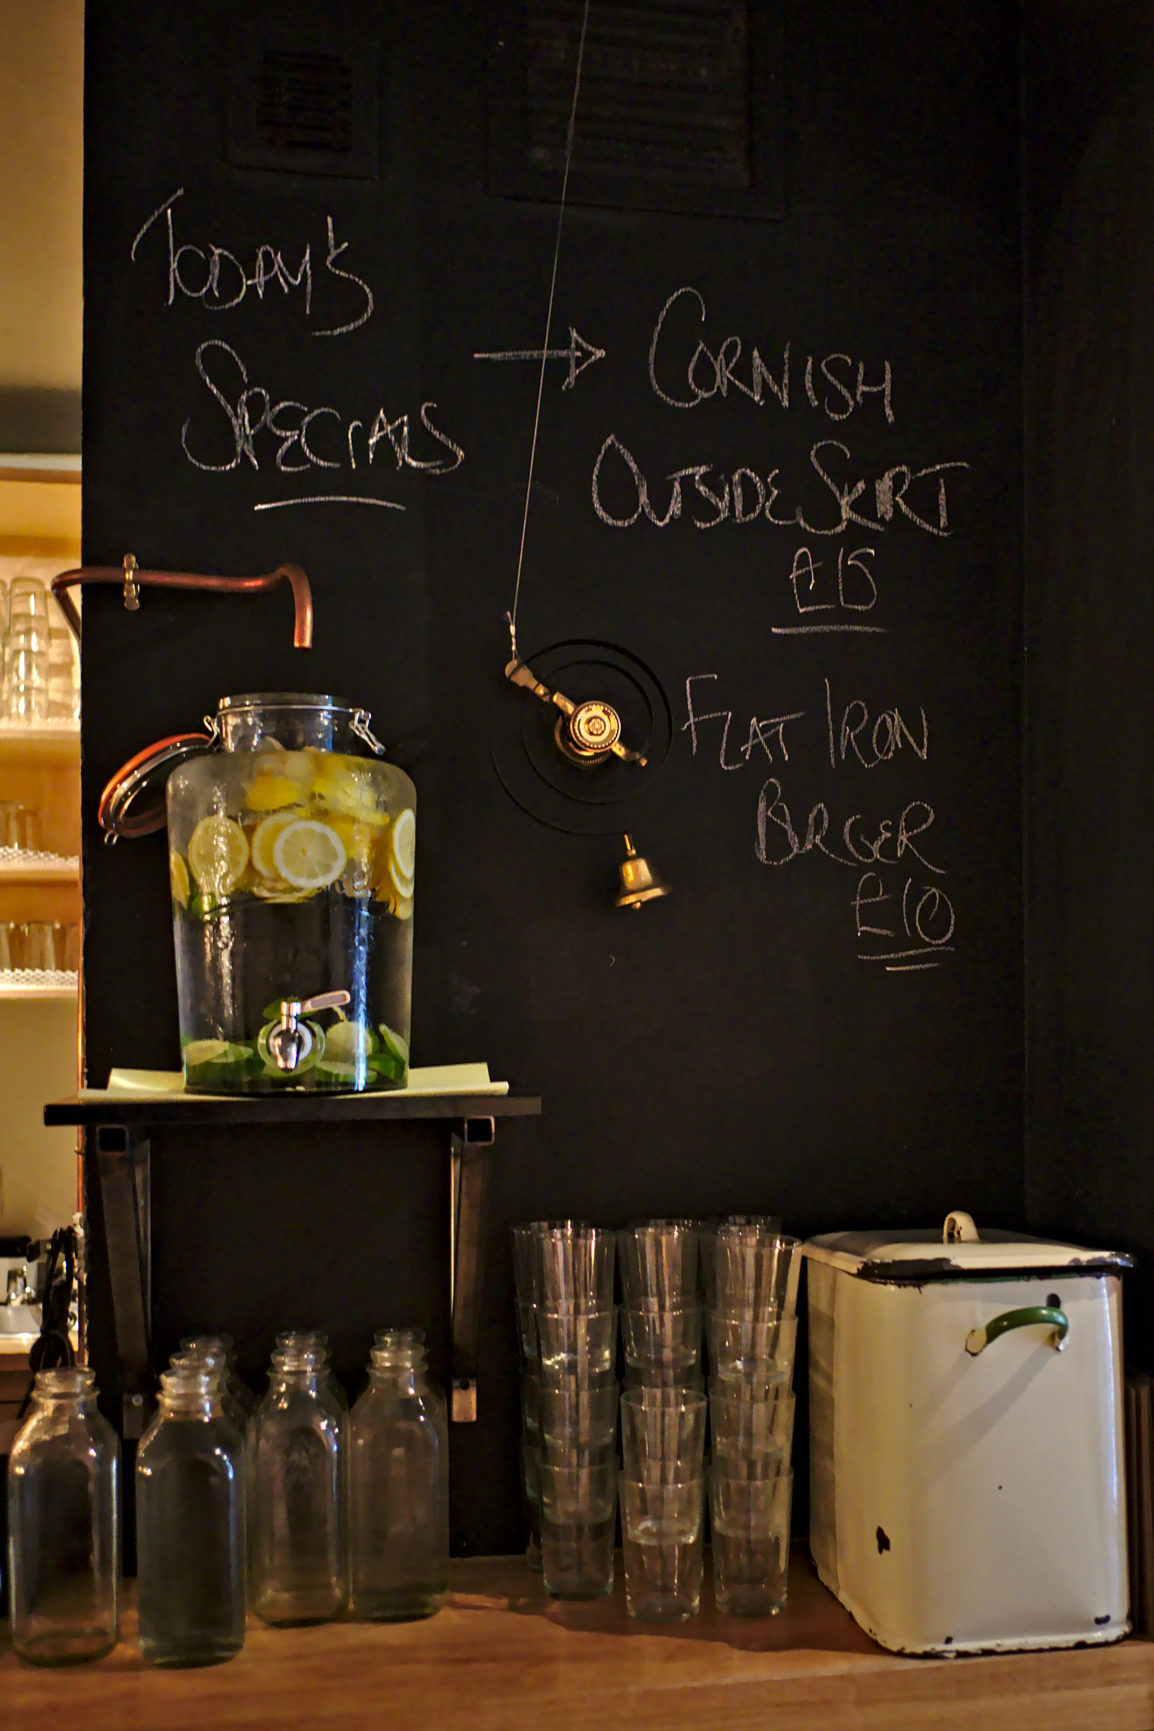 TODAY'S
SPECIALS
→ CORNISH
OUTSIDE SKIRT
£15
FLAT IRON
BURGER
£10